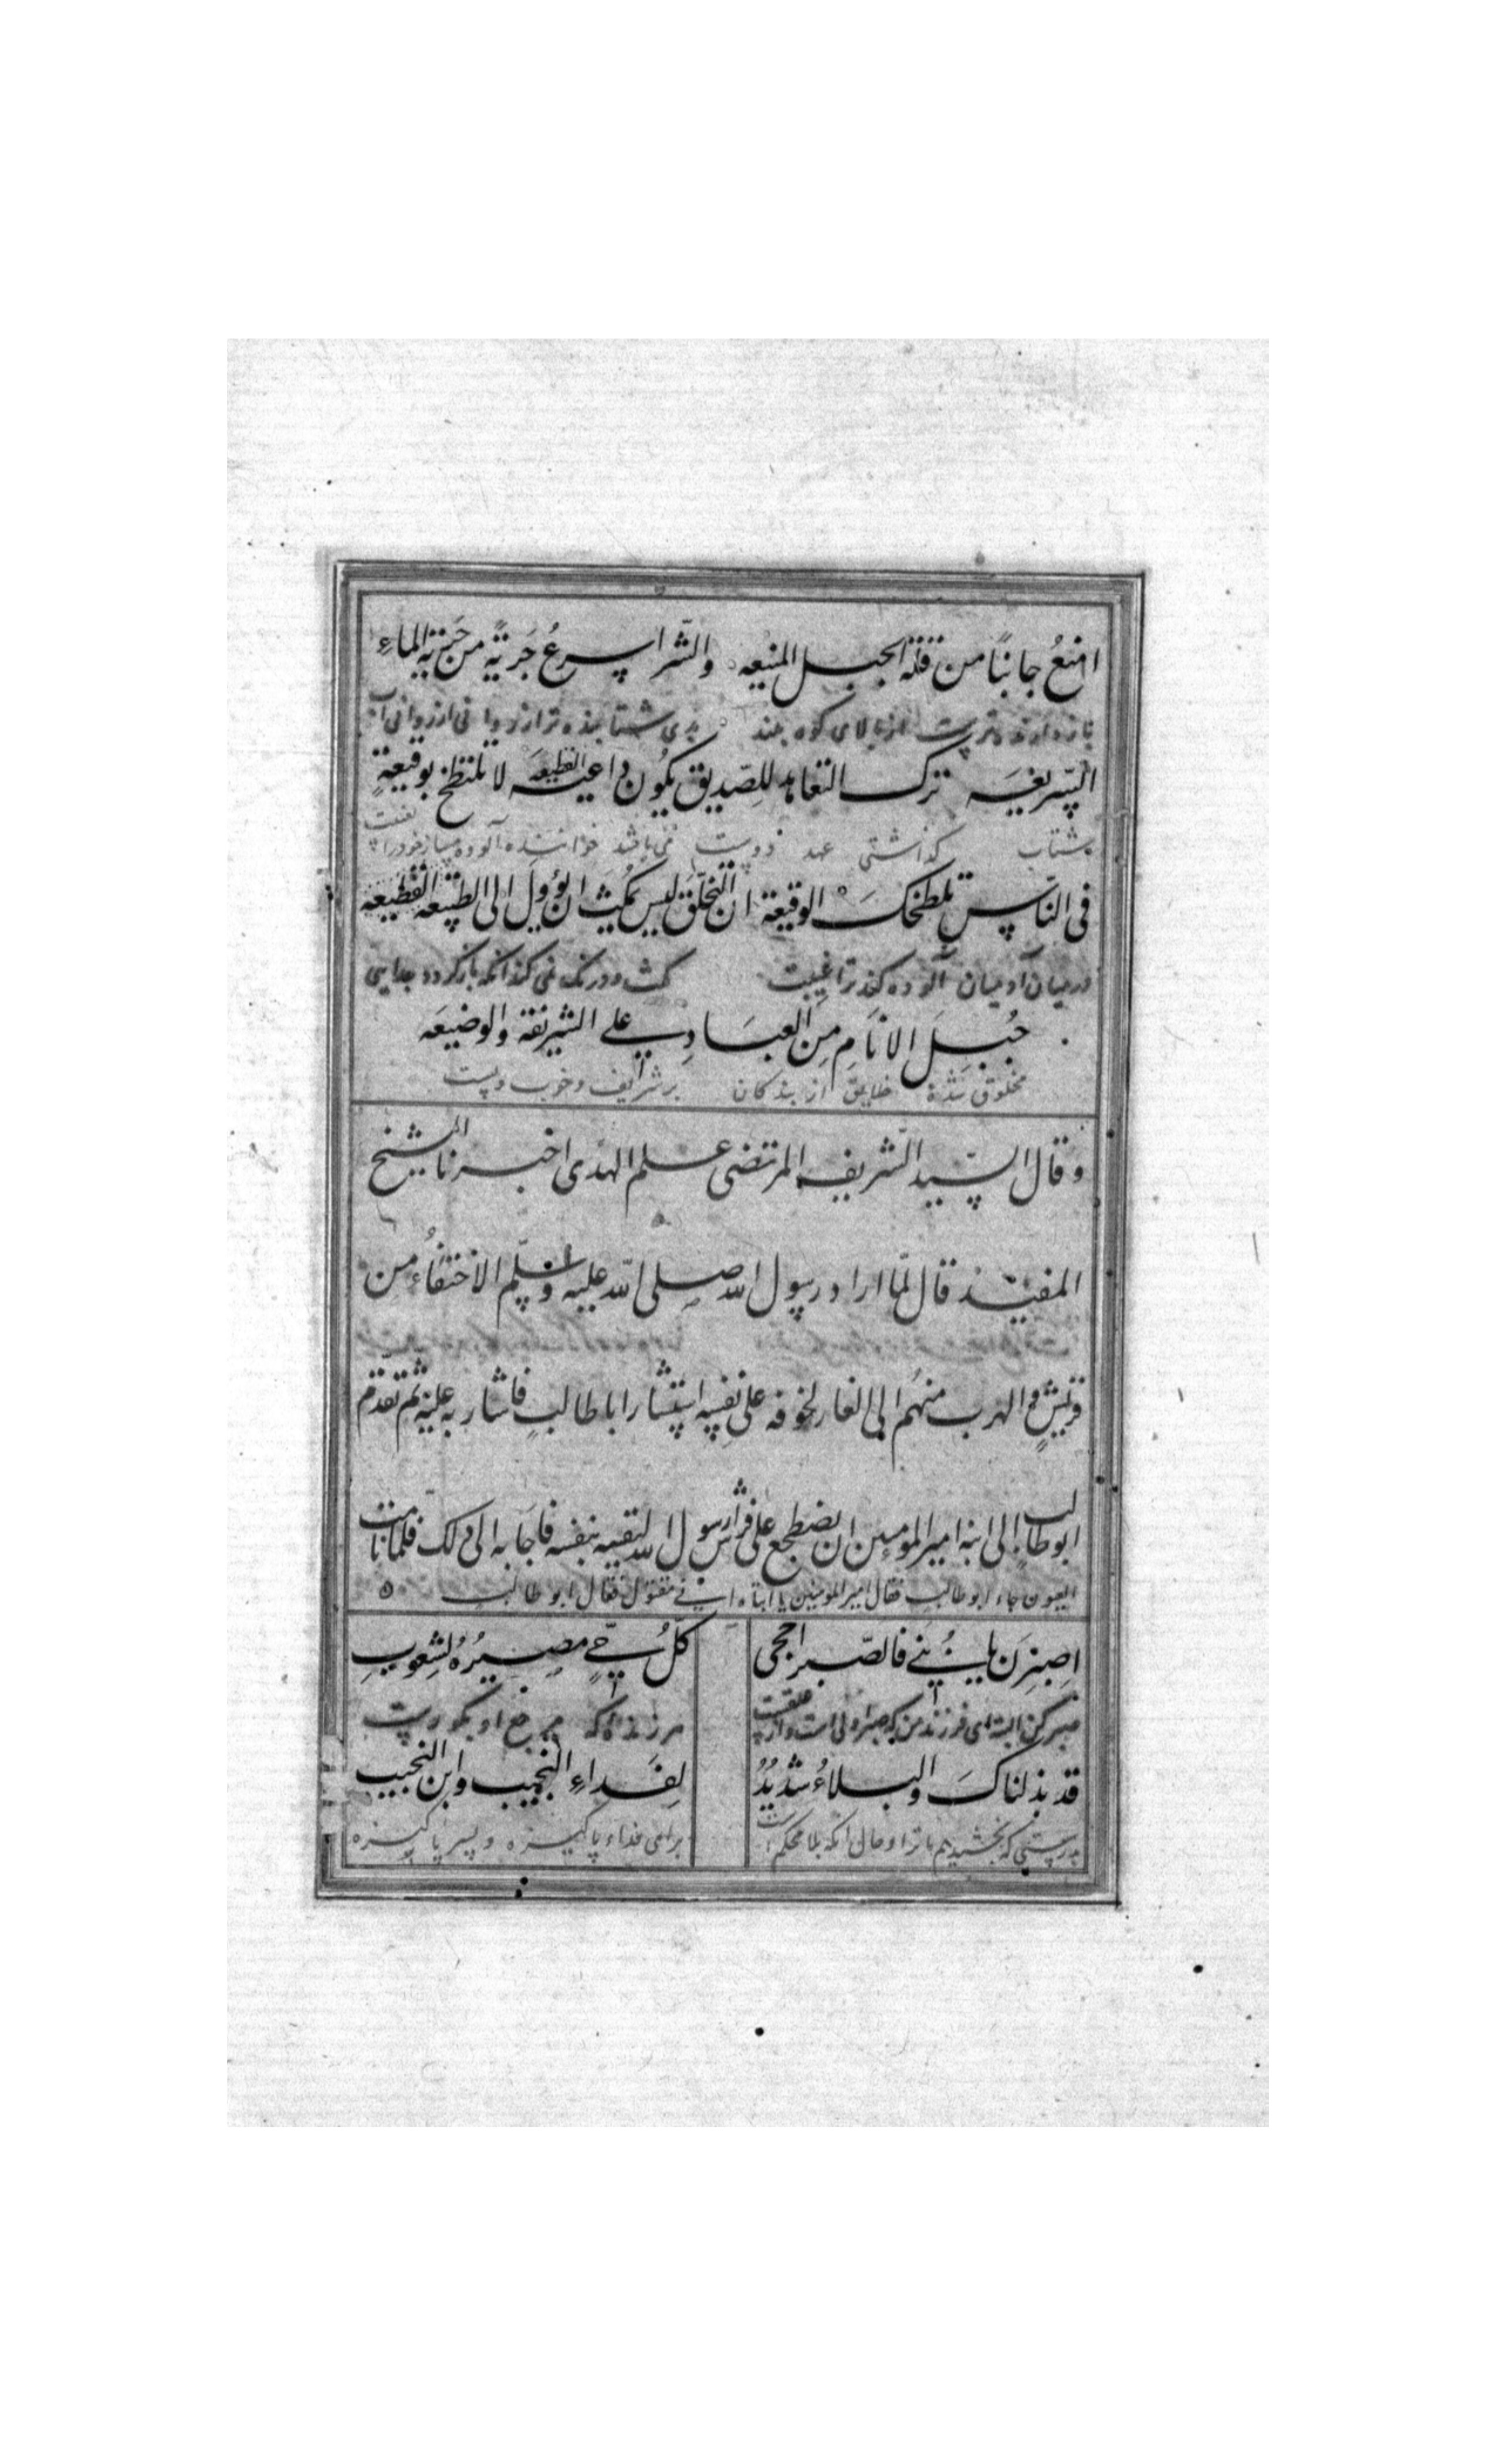 امنعُ جانبًا من قلة الجبل المنيعه والشر اسرعُ جَریةً من جَریة الماءِ
بازدارنده‌ترست از بالای کوه بلند بدی شتابنده‌تر از روانی از روانی آب
السریعَه ترک التعاهد للصدیق یکُون داعیة القطیعَه لا تلتطخ بوقیعةٍ
شتاب گذاشتی عهد دوست می‌باشد خواننده آلوده مساز خود را بغیبت
فی الناس تلطخکَ الوقیعة ان التخلّق لیس یمکث ان یؤولَ الی الطبیعة القطیعه
در میان آدمیان آلوده کند ترا غیبت مکث و درنگ نمی‌کند آنکه بازگردد بجدایی
جُبِلَ الانَامِ مِنَ العبَادِ علی الشریفة والوضیعَه
مخلوق شده خلایق از بندگان بر شرایف و خوب و پست
و قال السید الشریف المرتضی علم الهدی اخبرنا الشیخ
المفید قال لمّا اراد رسول الله صلی الله علیه و سلّم الاختفاءُ من
قریشٍ و الهرب منهُم الی الغار لخوفه علی نفسِه استشار ابا طالبٍ فاشار به علیه ثم تقدّم
ابو طالب الی ابنه امیر المومنین ان یضطجع علی فراش رسول الله لیقیه بنفسه فاجَابه الی ذلک فلما نامت
العیون جاء ابو طالب فقال امیر المومنین یا ابتاه انی مقتول فقال ابو طالب
اِصبِرَن یا بُنَیَّ فالصبر احجی کلُّ حیٍّ مصیرُهُ لشعوبِ
صبر کن البته ای فرزند من که صبر اولی است و از هر زنده که مرجع او بگورست
قد بذلناکَ والبلاءُ شدیدُ لِفَداءِ النجیب وابن النجیب
بدرستی که بخشیدیم ما ترا و حال آنکه بلا محکم است برای فداء پاکیزه و پسر پاکیزه